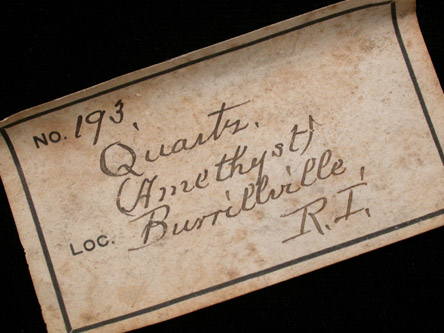 No. 193.
Quartz.
(Amethyst)
Loc. Burrillville,
R.I.